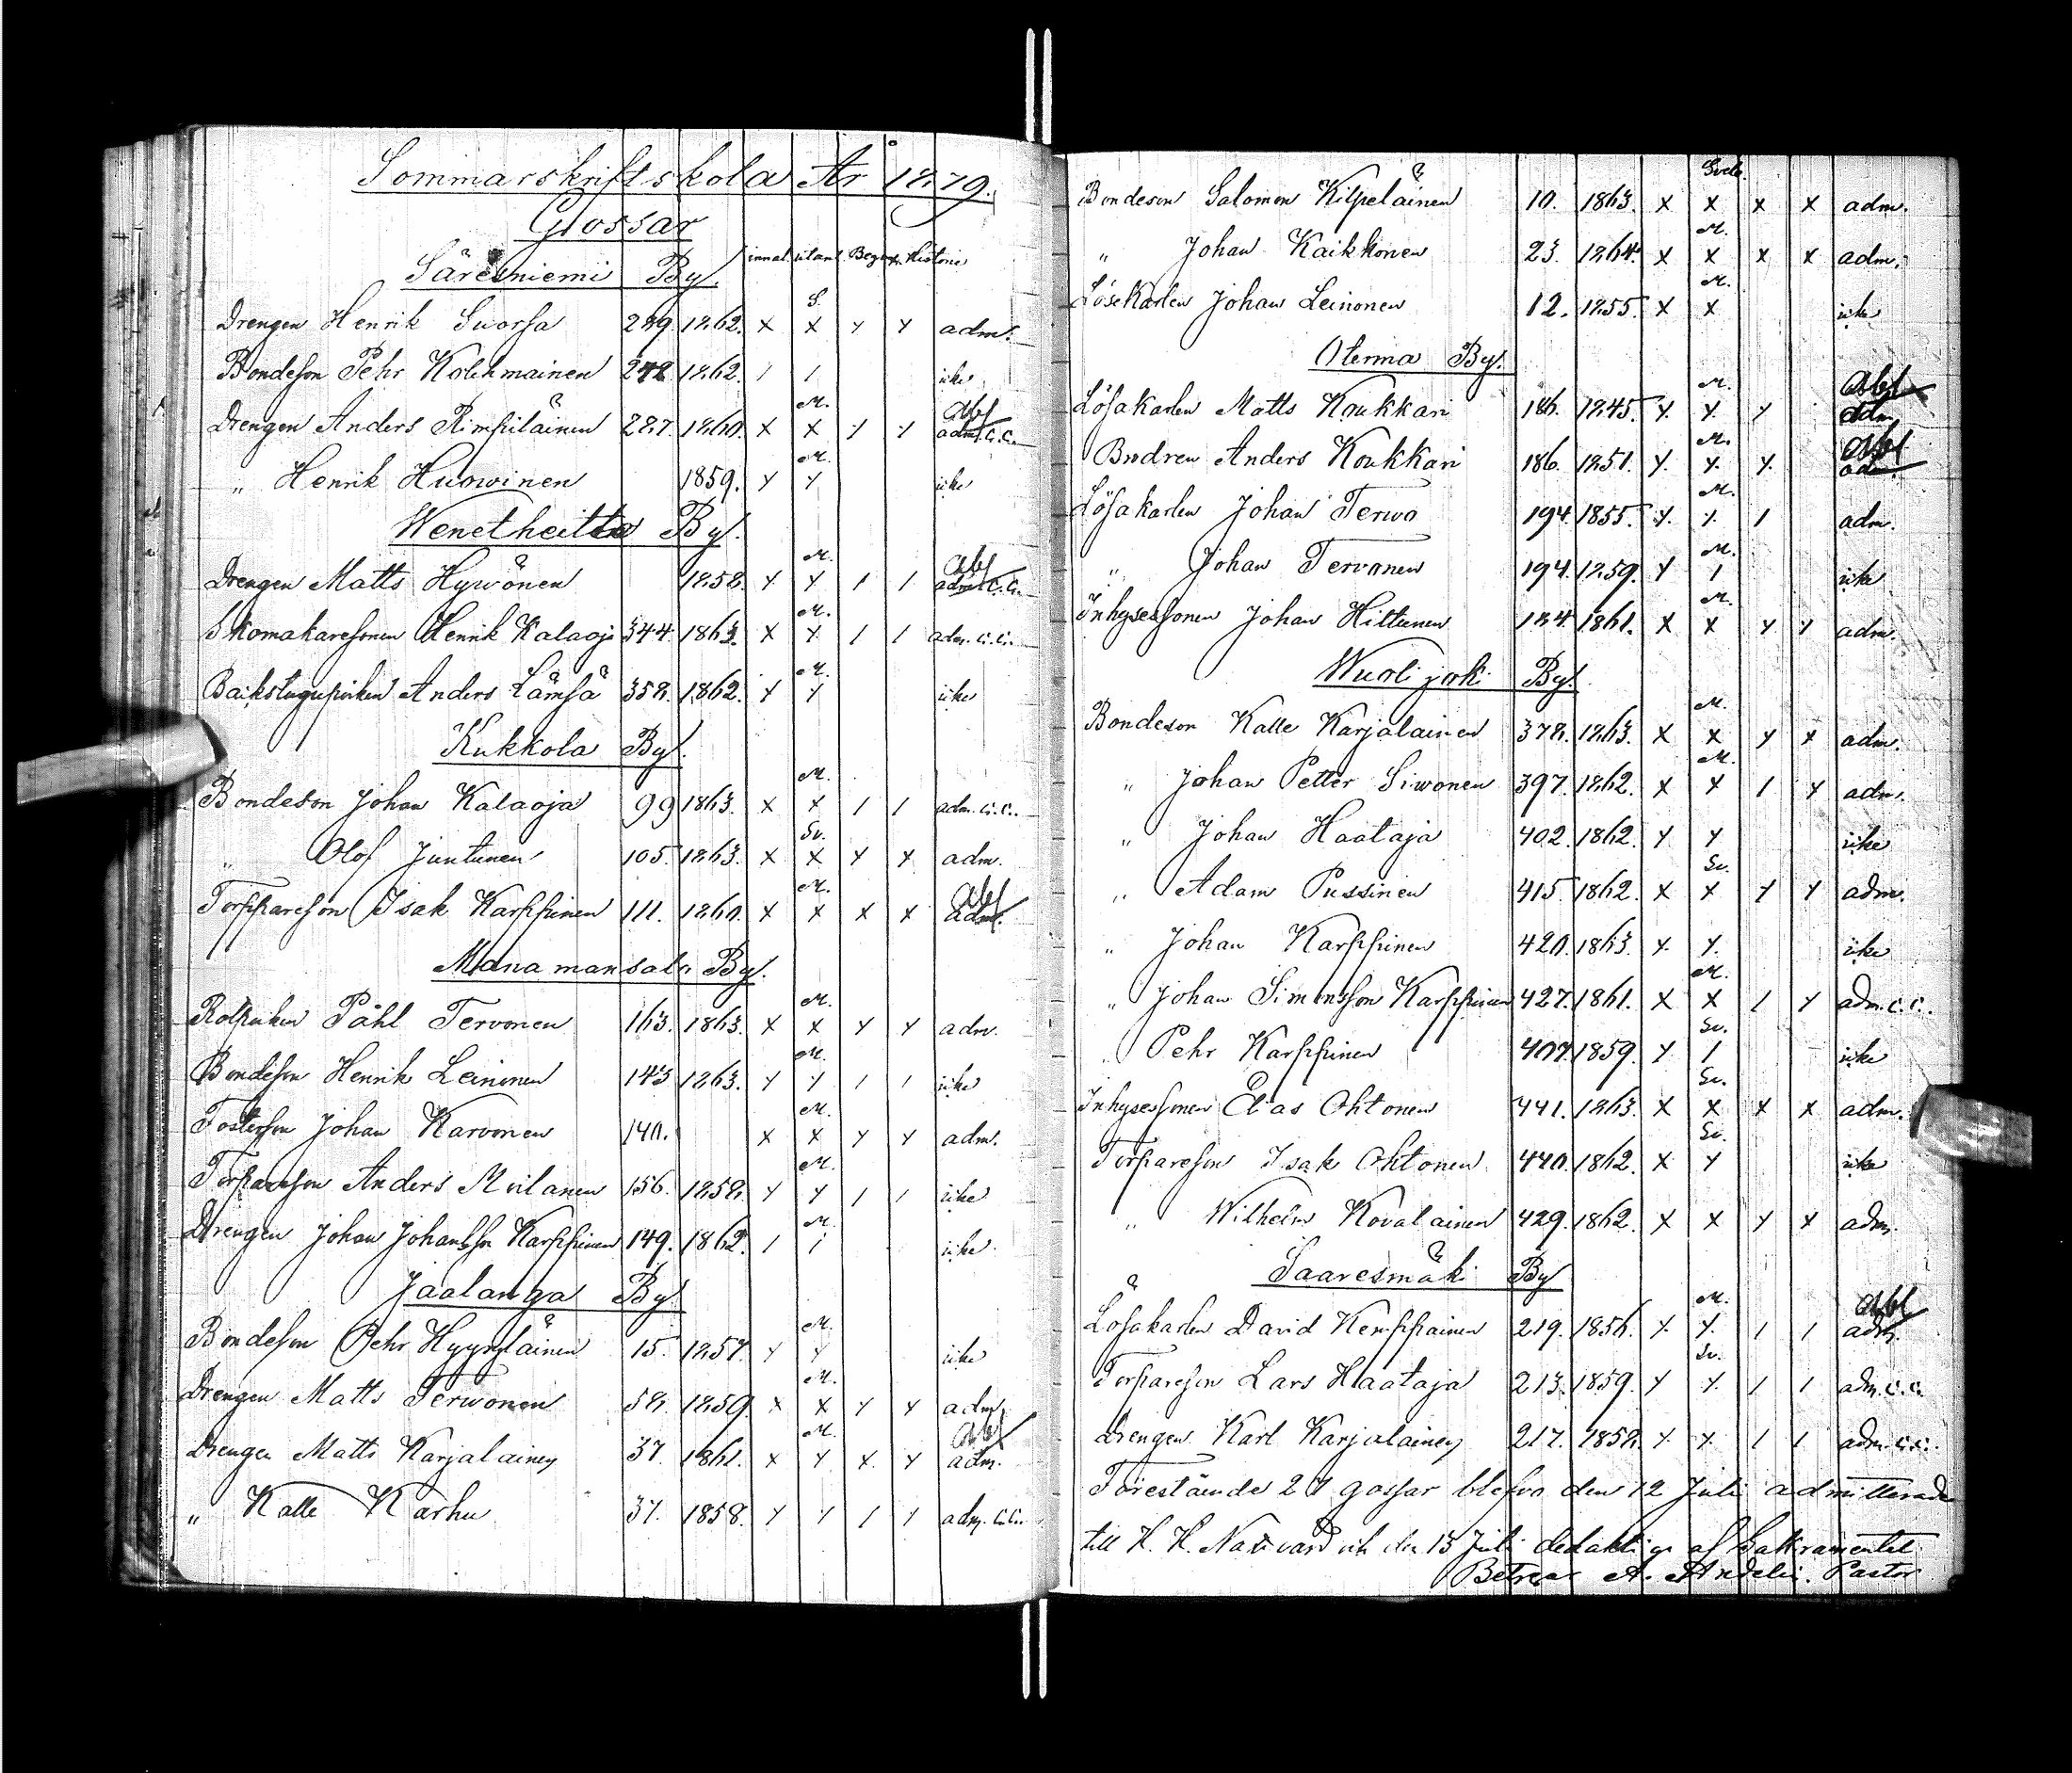 Sommarskriftskola År 1879.
Gossar
innal. utant. Begrep. Historie
Säresniemi By.
S.
Drengen Henrik Suorsa 289. 1862. x x y y adm.
Bondeson Pehr Kolehmainen 278 1862. / / icke
M.
Drengen Anders Rimpiläinen 287. 1860. x x y y Abl adm. c.c.
M.
„ Henrik Huovinen 1859. y y icke
Wenetheitto By.
M.
Drengen Matts Hyvönen 1858. y y / / Abl adm. c.c.
M.
Skomakaresonen Henrik Kalaoja 344. 1863. x y / / adm. c.c.
M.
Anders Lämsä 358. 1862. y y icke
Kukkola By.
M.
Bondeson Johan Kalaoja 99 1863. x x / / adm. c.c.
Sv.
„ Olof Juntunen 105. 1863. x x y y adm.
M.
Torppareson Isak Karppinen 111. 1860. x x x x Abl adm.
Manamansalo By.
M.
Påhl Tervonen 163. 1863. x x y y adm.
M.
Bondeson Henrik Leinonen 143 1863. y y / / icke
M.
Fosterson Johan Karvonen 140. x x y y adm.
M.
Torpareson Anders Moilanen 156. 1858. y y / / icke
M.
Drengen Johan Johansson Karppinen 149. 1862. / / icke
Jaalanga By
M.
Bondeson Pehr Hyyryläinen 15. 1857. y y icke
M.
Drengen Matts Terwonen 58. 1859. x x y y adm.
M.
Drengen Matts Karjalainen 37. 1861. x y x y Abl adm.
„ Kalle Karhu 37. 1858. y y / y adm. c.c.
Svelo.
Bondeson Salomon Kilpeläinen 10. 1863. x x x x adm.
M.
„ Johan Kaikkonen 23. 1864. x x x x adm.
M.
Lösekarlen Johan Leinonen 12. 1855. x x icke
Oterma By.
M.
Lösakarlen Matts Koukkari 186. 1845. y. y. y Abl adm.
M.
Brodren Anders Koukkari 186. 1851. y. y. y. Abl adm.
M.
Lösakarlen Johan Terwo 194. 1855. y. y. / adm.
M.
„ Johan Tervonen 194. 1859. y / icke
M.
Inhysessonen Johan Hiltunen 184. 1861. x x y y adm.
Wuolijoki By.
M.
Bondeson Kalle Karjalainen 378. 1863. x x y x adm.
M.
„ Johan Petter Siwonen 397. 1862. x x / y adm.
„ Johan Haataja 402. 1862. y y icke
Sv.
„ Adam Pussinen 415. 1862. x x y y adm.
„ Johan Karppinen 420. 1863. y. y. icke
M.
„ Johan Simonsson Karppinen 427. 1861. x x / y adm. c.c.
Sv.
„ Pehr Karppinen 407. 1859. y / icke
Sv.
Inhysessonen Elias Ohtonen 441. 1863. x x x x adm.
Sv.
Torpareson Isak Ohtonen 440. 1862. x y icke
„ Wilhelm Kovalainen 429. 1862. x x y x adm.
Saaresmäki By
M.
Lösakarlen David Kemppainen 219. 1856. y. y. / / Abl adm.
Sv.
Torpareson Lars Haataja 213. 1859. y y. / / adm. c.c.
Drengen Karl Karjalainen 217. 1858. y. y. / / adm. c.c.
Förestående 27 gossar blefvo den 12 Juli admitterade
till H. H. Nattvard och den 13 Juli delaktige af Sakramentet
A. Andelin. Pastor